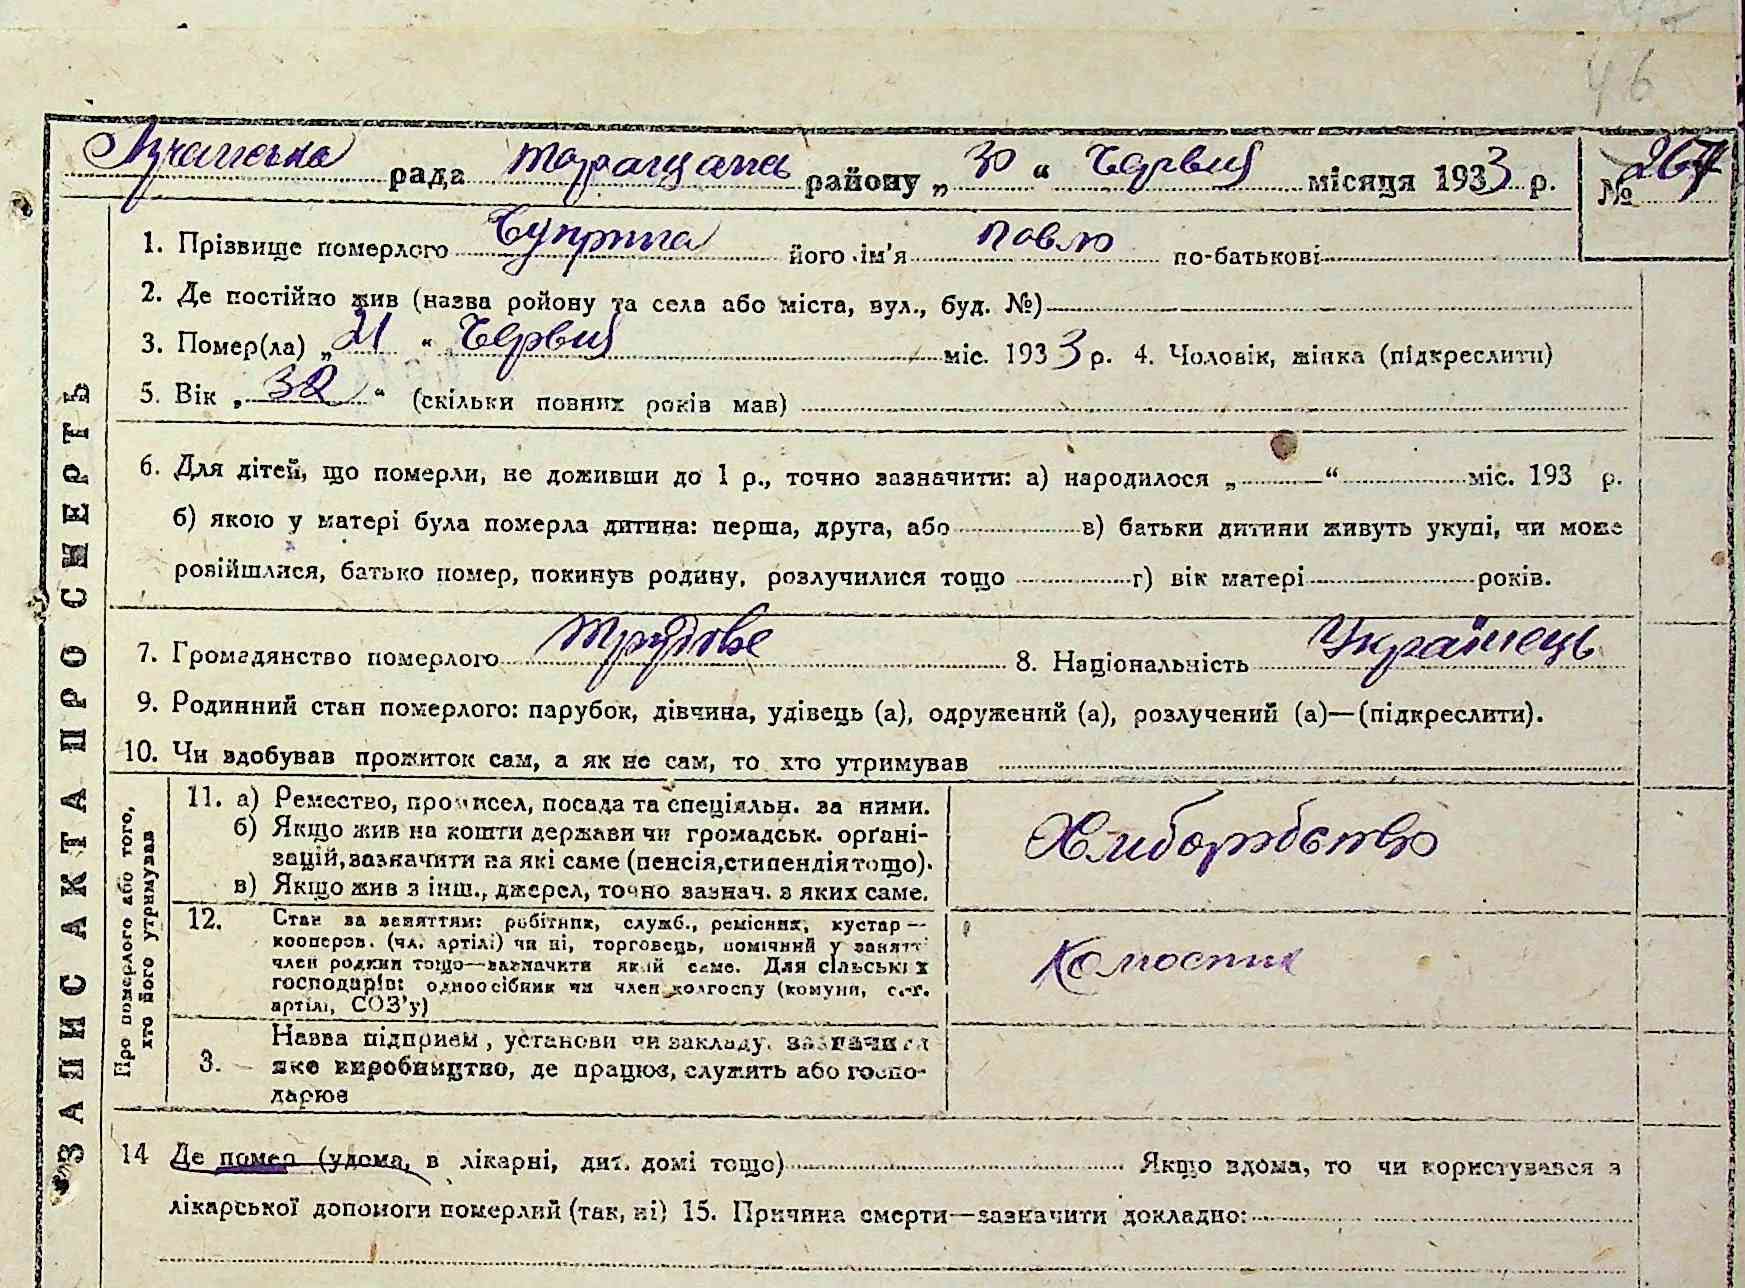 46
Лучанська рада Таращансь району „30“ Червня місяця 1933 р. № 267
1. Прізвище померлого Чуприна його ім'я Павло по-батькові
2. Де постійно жив (назва ройону та села або міста, вул., буд. №)
3. Помер(ла) „21“ Червня міс. 1933 р. 4. Чоловік, жінка (підкреслити)
5. Вік „32“ (скільки повних років мав)
6. Для дітей, що померли, не доживши до 1 р., точно зазначити: а) народилося „ “ міс. 193 р.
б) якою у матері була померла дитина: перша, друга, або в) батьки дитини живуть укупі, чи може
розійшлися, батько помер, покинув родину, розлучилися тощо г) вік матері років.
7. Громадянство померлого Трудове 8. Національність Українець
9. Родинний стан померлого: парубок, дівчина, удівець (а), одружений (а), розлучений (а)—(підкреслити).
10. Чи здобував прожиток сам, а як не сам, то хто утримував
11. а) Ремество, промисел, посада та спеціяльн. за ними.
б) Якщо жив на кошти держави чи громадськ. орґані-
зацій, зазначити на які саме (пенсія, стипендія тощо).
в) Якщо жив з інш., джерел, точно зазнач. з яких саме.
Хліборобство
12. Стан за заняттям: робітник, служб., ремісник, кустар—
кооперов. (чл. артілі) чи ні, торговець, помічний у занятт
член родини тощо—зазначити який саме. Для сільських
господарів: одноосібник чи член колгоспу (комуни, с.-г.
артілі, СОЗ'у)
Колгоспник
3. Назва підприєм, установи чи закладу, зазначити
яке виробництво, де працює, служить або госпо-
дарює
14 Де помер (удома, в лікарні, дит. домі тощо) Якщо вдома, то чи користувався з
лікарської допомоги померлий (так, ні) 15. Причина смерти—зазначити докладно:
ЗАПИС АКТА ПРО СМЕРТЬ
Про померлого або того,
хто його утримував